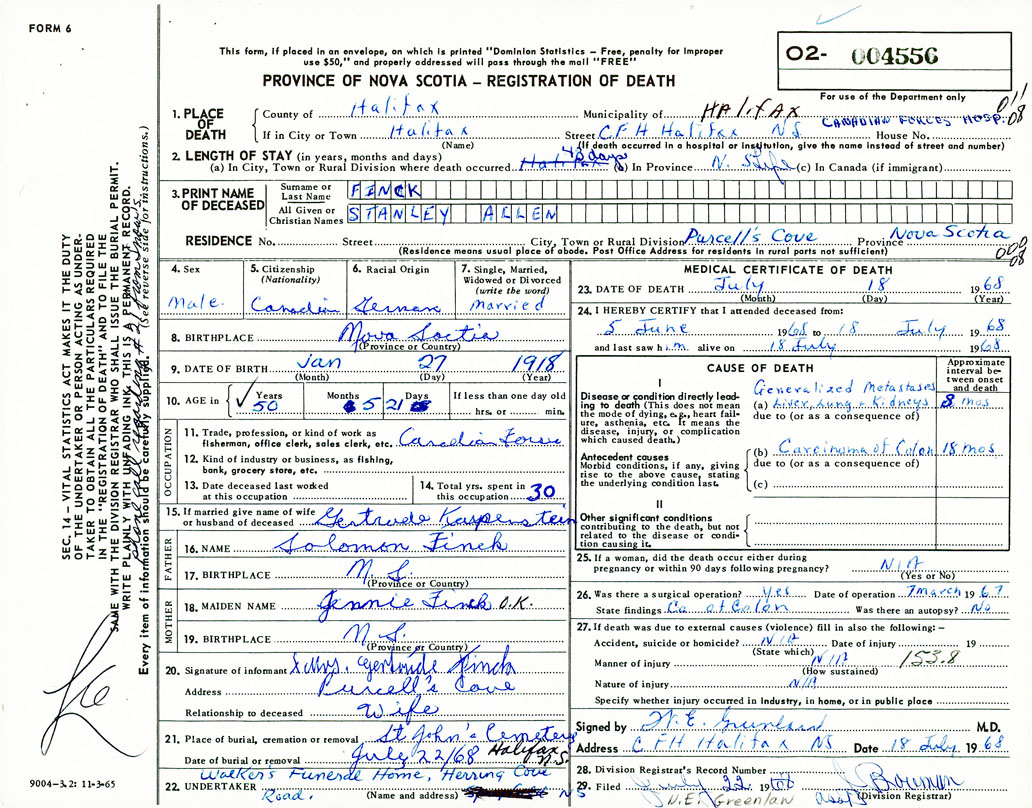 FORM 6
This form, if placed in an envelope, on which is printed "Dominion Statistics – Free, penalty for improper
use $50," and properly addressed will pass through the mail "FREE"
O2- 004556
PROVINCE OF NOVA SCOTIA – REGISTRATION OF DEATH
For use of the Department only
011
08
1. PLACE OF DEATH
County of Halifax Municipality of HAliFAX
CANADIAN FORCES HOSP.
If in City or Town Halifax Street C.F.H Halifax NS House No.
(Name) (If death occurred in a hospital or institution, give the name instead of street and number)
2. LENGTH OF STAY (in years, months and days)
(a) In City, Town or Rural Division where death occurred 43 days (b) In Province N. S. Life (c) In Canada (if immigrant)
3. PRINT NAME OF DECEASED
Surname or Last Name FINCK
All Given or Christian Names STANLEY ALLEN
RESIDENCE No. Street City, Town or Rural Division Purcell's Cove Province Nova Scotia
(Residence means usual place of abode. Post Office Address for residents in rural parts not sufficient)
000
08
4. Sex
Male.
5. Citizenship (Nationality)
Canadian
6. Racial Origin
German
7. Single, Married, Widowed or Divorced (write the word)
married
8. BIRTHPLACE Nova Soctia
(Province or Country)
9. DATE OF BIRTH Jan 27 1918
(Month) (Day) (Year)
10. AGE in Years Months Days If less than one day old
50 5 21 hrs. or min.
OCCUPATION
11. Trade, profession, or kind of work as
fisherman, office clerk, sales clerk, etc. Canadian Forces
12. Kind of industry or business, as fishing,
bank, grocery store, etc.
13. Date deceased last worked
at this occupation
14. Total yrs. spent in
this occupation 30
15. If married give name of wife
or husband of deceased Gertrude Kaupenstein
FATHER
16. NAME Solomon Finck
17. BIRTHPLACE N. S.
(Province or Country)
MOTHER
18. MAIDEN NAME Jennie Finck O.K.
19. BIRTHPLACE N S.
(Province or Country)
20. Signature of informant X Mrs. Gertrude Finck
Address Purcell's Cove
Relationship to deceased Wife
21. Place of burial, cremation or removal St John's Cemetery
Date of burial or removal July 22/68 Halifax N.S.
Walker's Funerde Home, Herring Cove
22. UNDERTAKER Road. NS
(Name and address)
MEDICAL CERTIFICATE OF DEATH
23. DATE OF DEATH July 18 1968
(Month) (Day) (Year)
24. I HEREBY CERTIFY that I attended deceased from:
5 June 1968 to 18 July 1968
and last saw him alive on 18 July 1968
CAUSE OF DEATH
Approximate interval between onset and death
I
Disease or condition directly leading to death (This does not mean the mode of dying, e.g., heart failure, asthenia, etc. It means the disease, injury, or complication which caused death.)
Generalized Metastases
(a) Liver, Lung & Kidneys 8 mos
due to (or as a consequence of)
Antecedent causes
Morbid conditions, if any, giving rise to the above cause, stating the underlying condition last.
(b) Carcinoma of Colon 18 mos
due to (or as a consequence of)
(c)
II
Other significant conditions
contributing to the death, but not related to the disease or condition causing it.
25. If a woman, did the death occur either during
pregnancy or within 90 days following pregnancy? N/A
(Yes or No)
26. Was there a surgical operation? Yes Date of operation 7 March 1967
State findings Ca of Colon Was there an autopsy? No
27. If death was due to external causes (violence) fill in also the following: –
Accident, suicide or homicide? N/A Date of injury 19
(State which)
Manner of injury N/A 153.8
(How sustained)
Nature of injury N/A
Specify whether injury occurred in Industry, in home, or in public place
Signed by W. E. Greenlaw M.D.
Address C F H Halifax NS Date 18 July 1968
28. Division Registrar's Record Number
29. Filed July 22 1968 Bowman
W. E. Greenlaw asst (Division Registrar)
SEC. 14 – VITAL STATISTICS ACT MAKES IT THE DUTY
OF THE UNDERTAKER OR PERSON ACTING AS UNDER-
TAKER TO OBTAIN ALL THE PARTICULARS REQUIRED
IN THE "REGISTRATION OF DEATH" AND TO FILE THE
SAME WITH THE DIVISION REGISTRAR WHO SHALL ISSUE THE BURIAL PERMIT.
WRITE PLAINLY WITH UNFADING INK THIS IS A PERMANENT RECORD.
Every item of information should be carefully supplied. (See reverse side for instructions.)
9004–3.2: 11-3-65